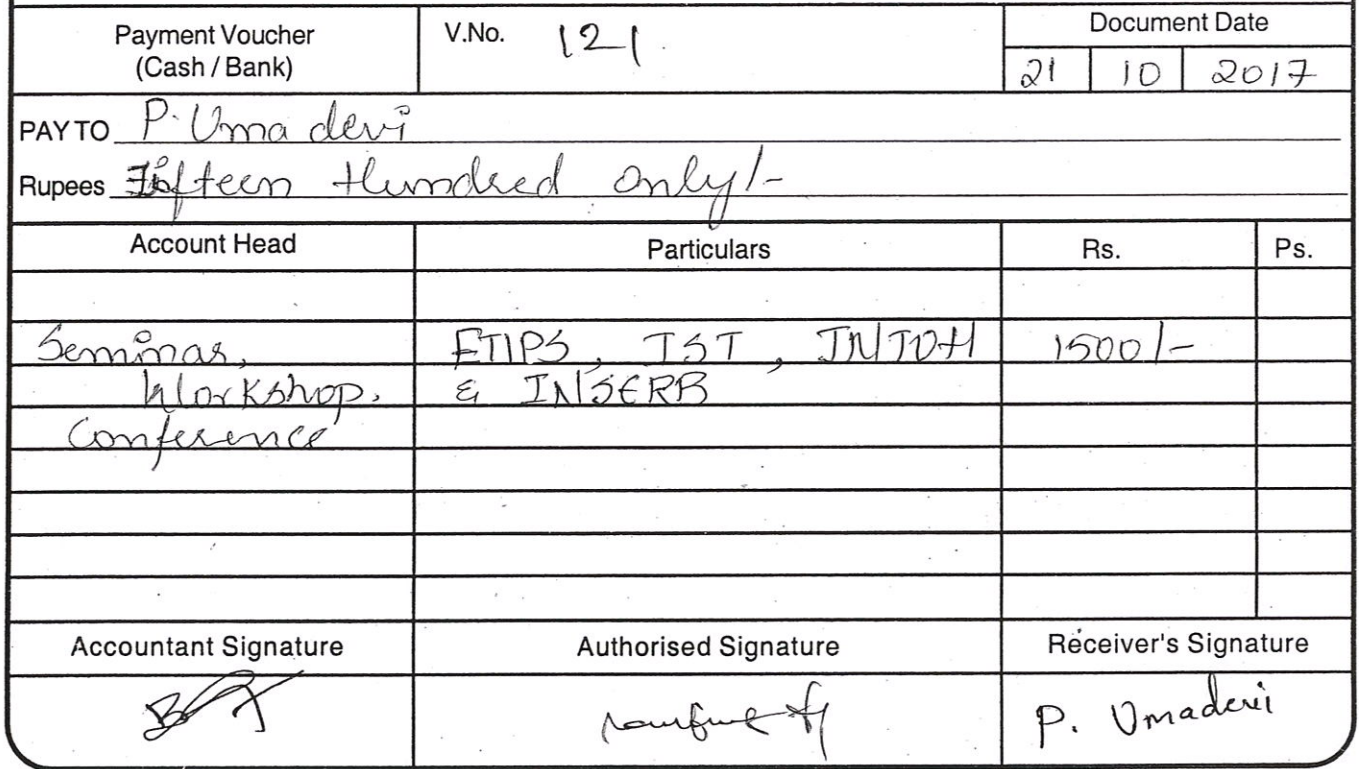 Payment Voucher
(Cash / Bank)
V.No. 121
Document Date
21 10 2017
PAY TO P. Uma devi
Rupees Fifteen Hundred only/-
Account Head Particulars Rs. Ps.
Seminar, ETIPS, IST, JNTUH 1500/-
Workshop. & INSERB
Conference
Accountant Signature Authorised Signature Receiver's Signature
P. Umadevi